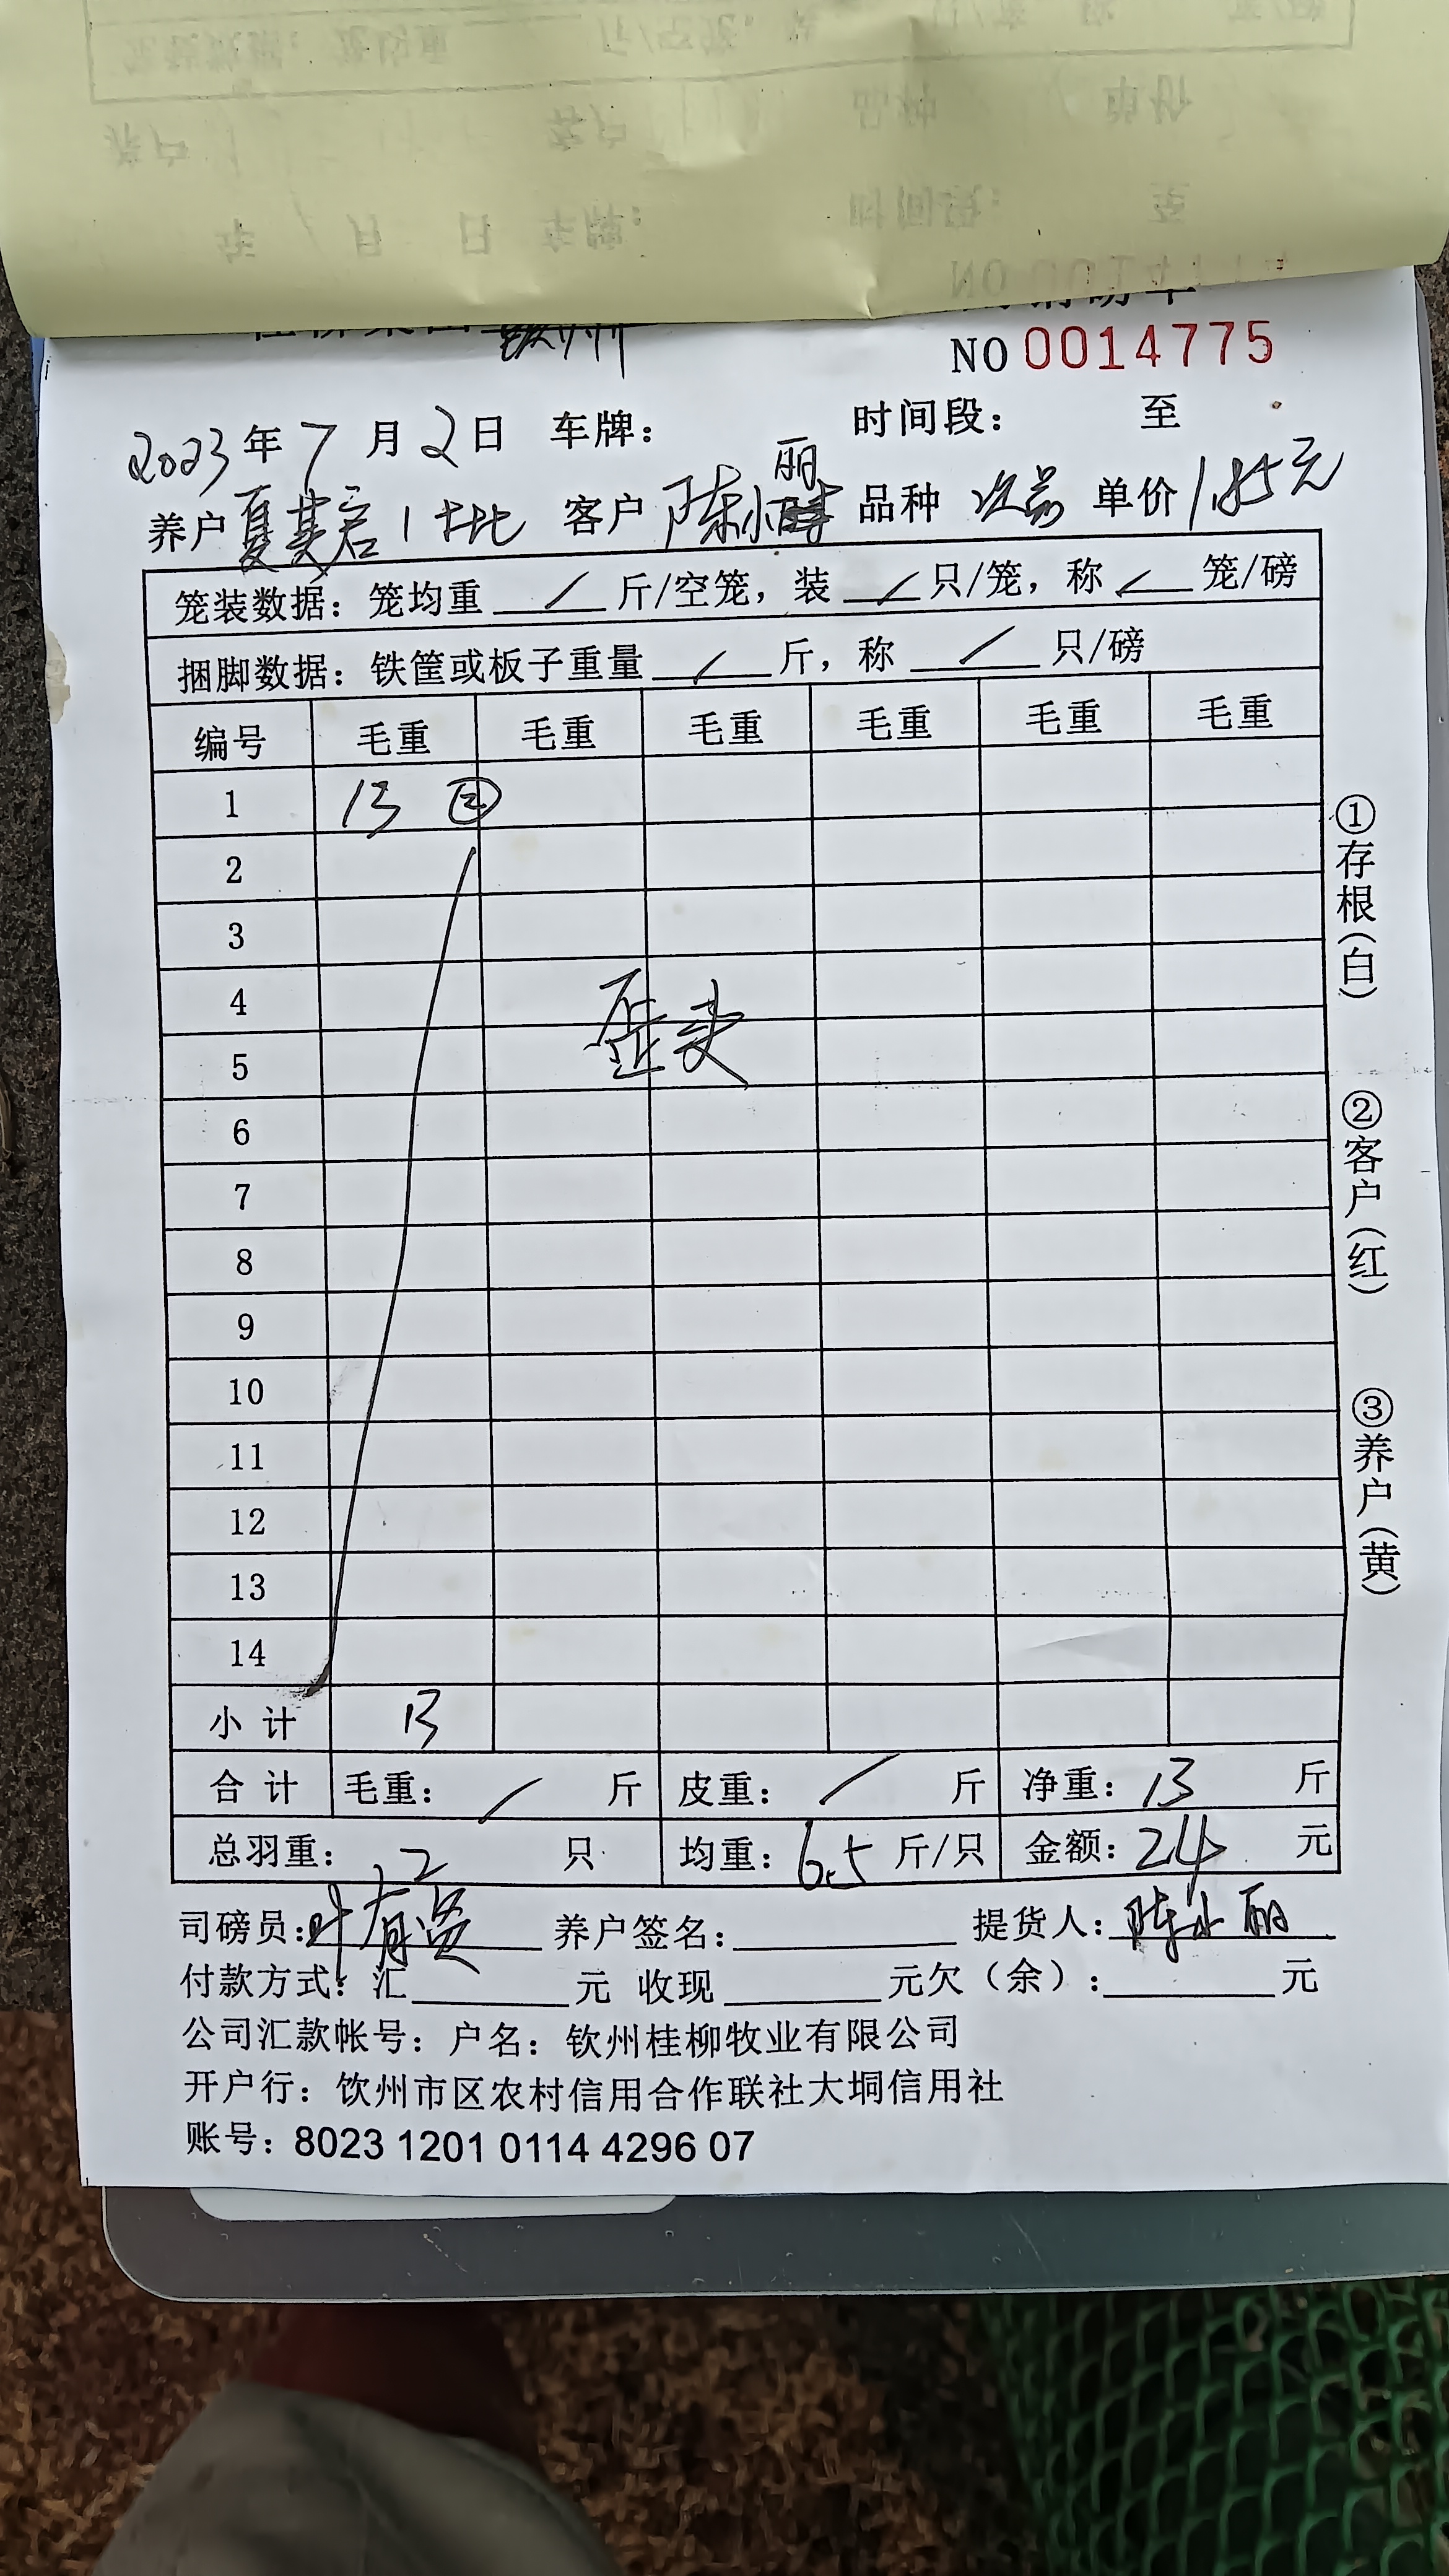 NO 0014775
2023年7月2日 车牌： 时间段： 至
养户 夏其宏1批 客户 陈小丽 品种 次品 单价 1.85元
笼装数据：笼均重 / 斤/空笼，装 / 只/笼，称 / 笼/磅
捆脚数据：铁筐或板子重量 / 斤，称 / 只/磅
编号 毛重 毛重 毛重 毛重 毛重 毛重
1 13 ②
2
3
4
歪头
5
6
7
8
9
10
11
12
13
14
小计 13
合计 毛重： / 斤 皮重： / 斤 净重：13 斤
总羽重：2 只 均重：6.5 斤/只 金额：24 元
司磅员：叶有资 养户签名： 提货人：陈小丽
付款方式：汇 元 收现 元欠（余）： 元
公司汇款帐号：户名：钦州桂柳牧业有限公司
开户行：钦州市区农村信用合作联社大垌信用社
账号：8023 1201 0114 4296 07
①存根（白）
②客户（红）
③养户（黄）